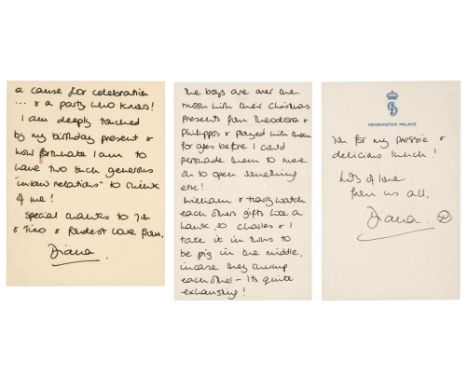 a cause for celebration
... & a party who knows!
I am deeply touched
by my birthday present &
how fortunate I am to
have two such generous
"in law relations" to think
of me!
Special thanks to you
& Tino & fondest love from,
Diana.
The boys are over the
moon with their Christmas
presents from Theodora &
Philippos & played with them
for ages before I could
persuade them to move
on to open something
else!
William & Harry watch
each others gifts like a
hawk so Charles & I
take it in turns to
be pig in the middle,
incase they thump
each other - Its quite
exhausting!
KENSINGTON PALACE
for my pressie &
delicious lunch!
Lots of love
from us all,
Diana.